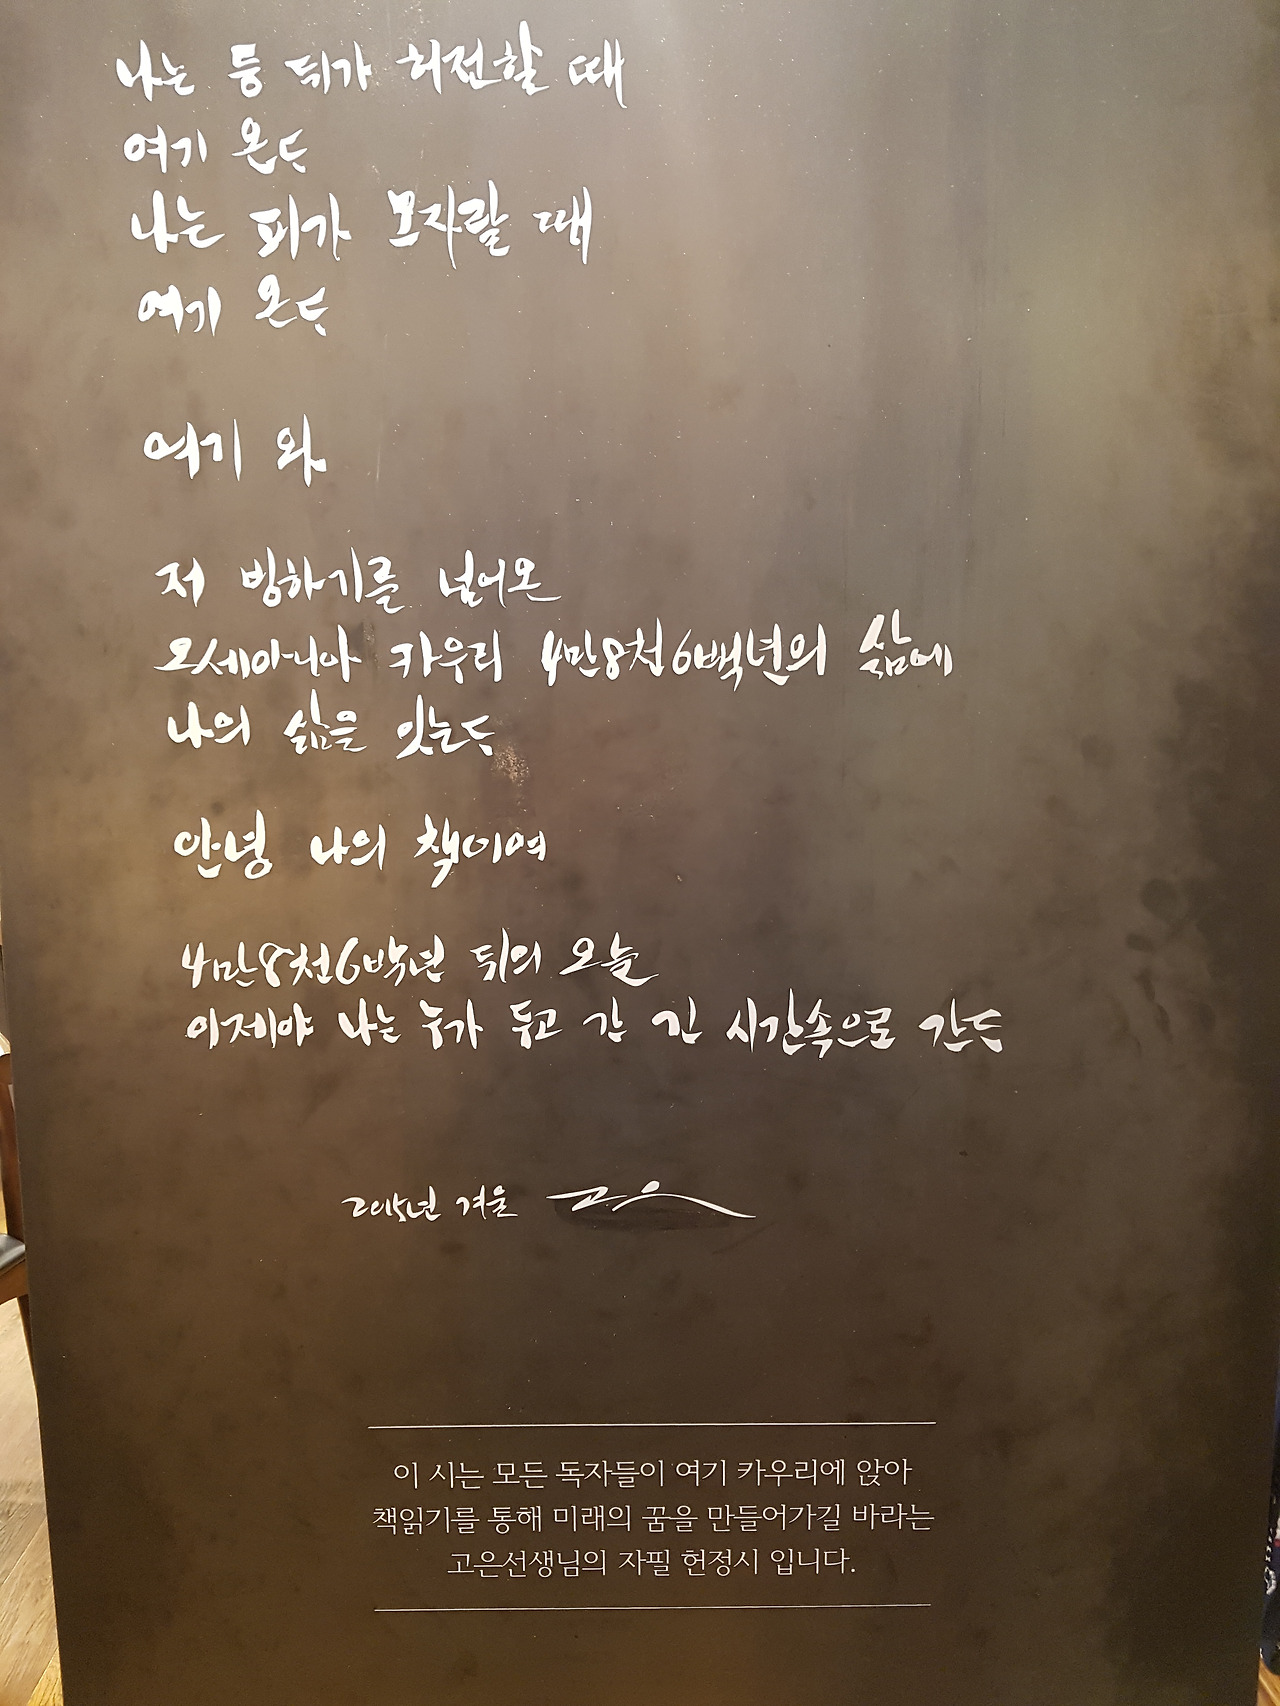 나는 등 뒤가 허전할 때
여기 온다
나는 피가 모자랄 때
여기 온다
여기 와
저 빙하기를 넘어온
오세아니아 카우리 4만8천6백년의 삶에
나의 삶을 잇는다
안녕 나의 책이여
4만8천6백년 뒤의 오늘
이제야 나는 누가 두고 간 긴 시간속으로 간다
2015년 겨울 고은
이 시는 모든 독자들이 여기 카우리에 앉아
책읽기를 통해 미래의 꿈을 만들어가길 바라는
고은선생님의 자필 헌정시 입니다.